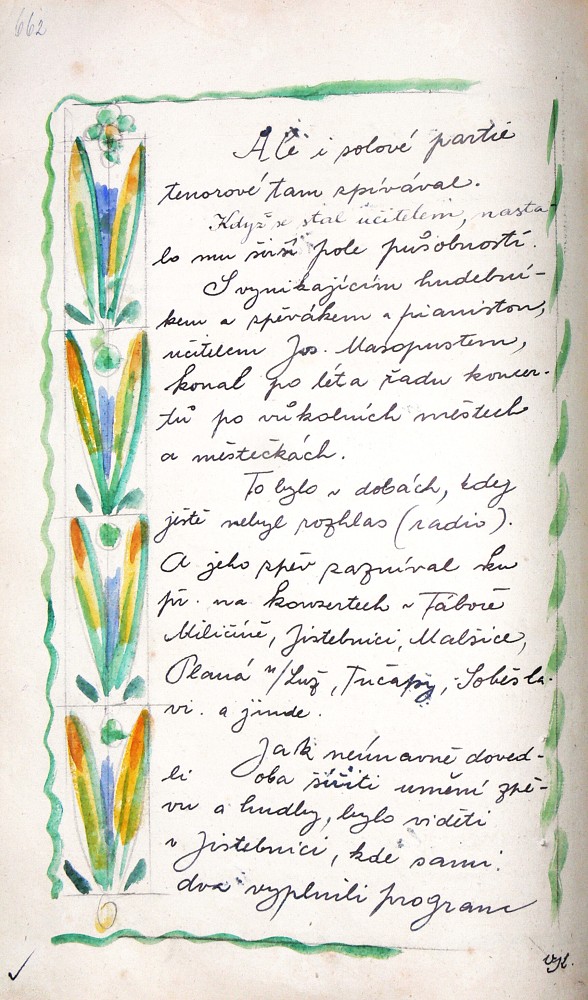 662
Ale i solové partie
tenorové tam zpívával.
Když se stal učitelem, nasta-
lo mu širší pole působnosti.
S vynikajícím hudební-
kem a zpěvákem a pianistou,
učitelem Jos. Masopustem,
konal po léta řadu koncer-
tů po vůkolních městech
a městečkách.
To bylo v dobách, kdy
ještě nebyl rozhlas (radio).
A jeho zpěv zazníval ku
př. na konzertech v Táboře
Miličíně, Jistebnici, Malšice,
Planá n/Luž, Tučapy, Soběsla-
vi. a jinde.
Jak neúnavně doved-
li oba šířiti umění zpě-
vu a hudby, bylo viděti
v Jistebnici, kde sami
dva vyplnili program